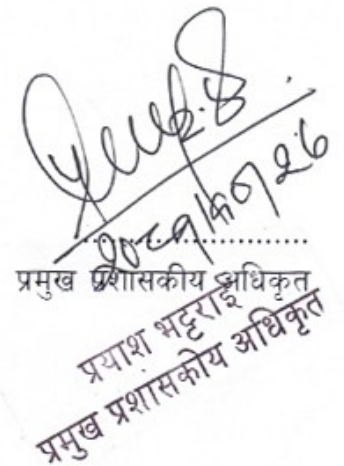 प्रमुख प्रशासकीय अधिकृत
प्रयाश भट्टराई
प्रमुख प्रशासकीय अधिकृत